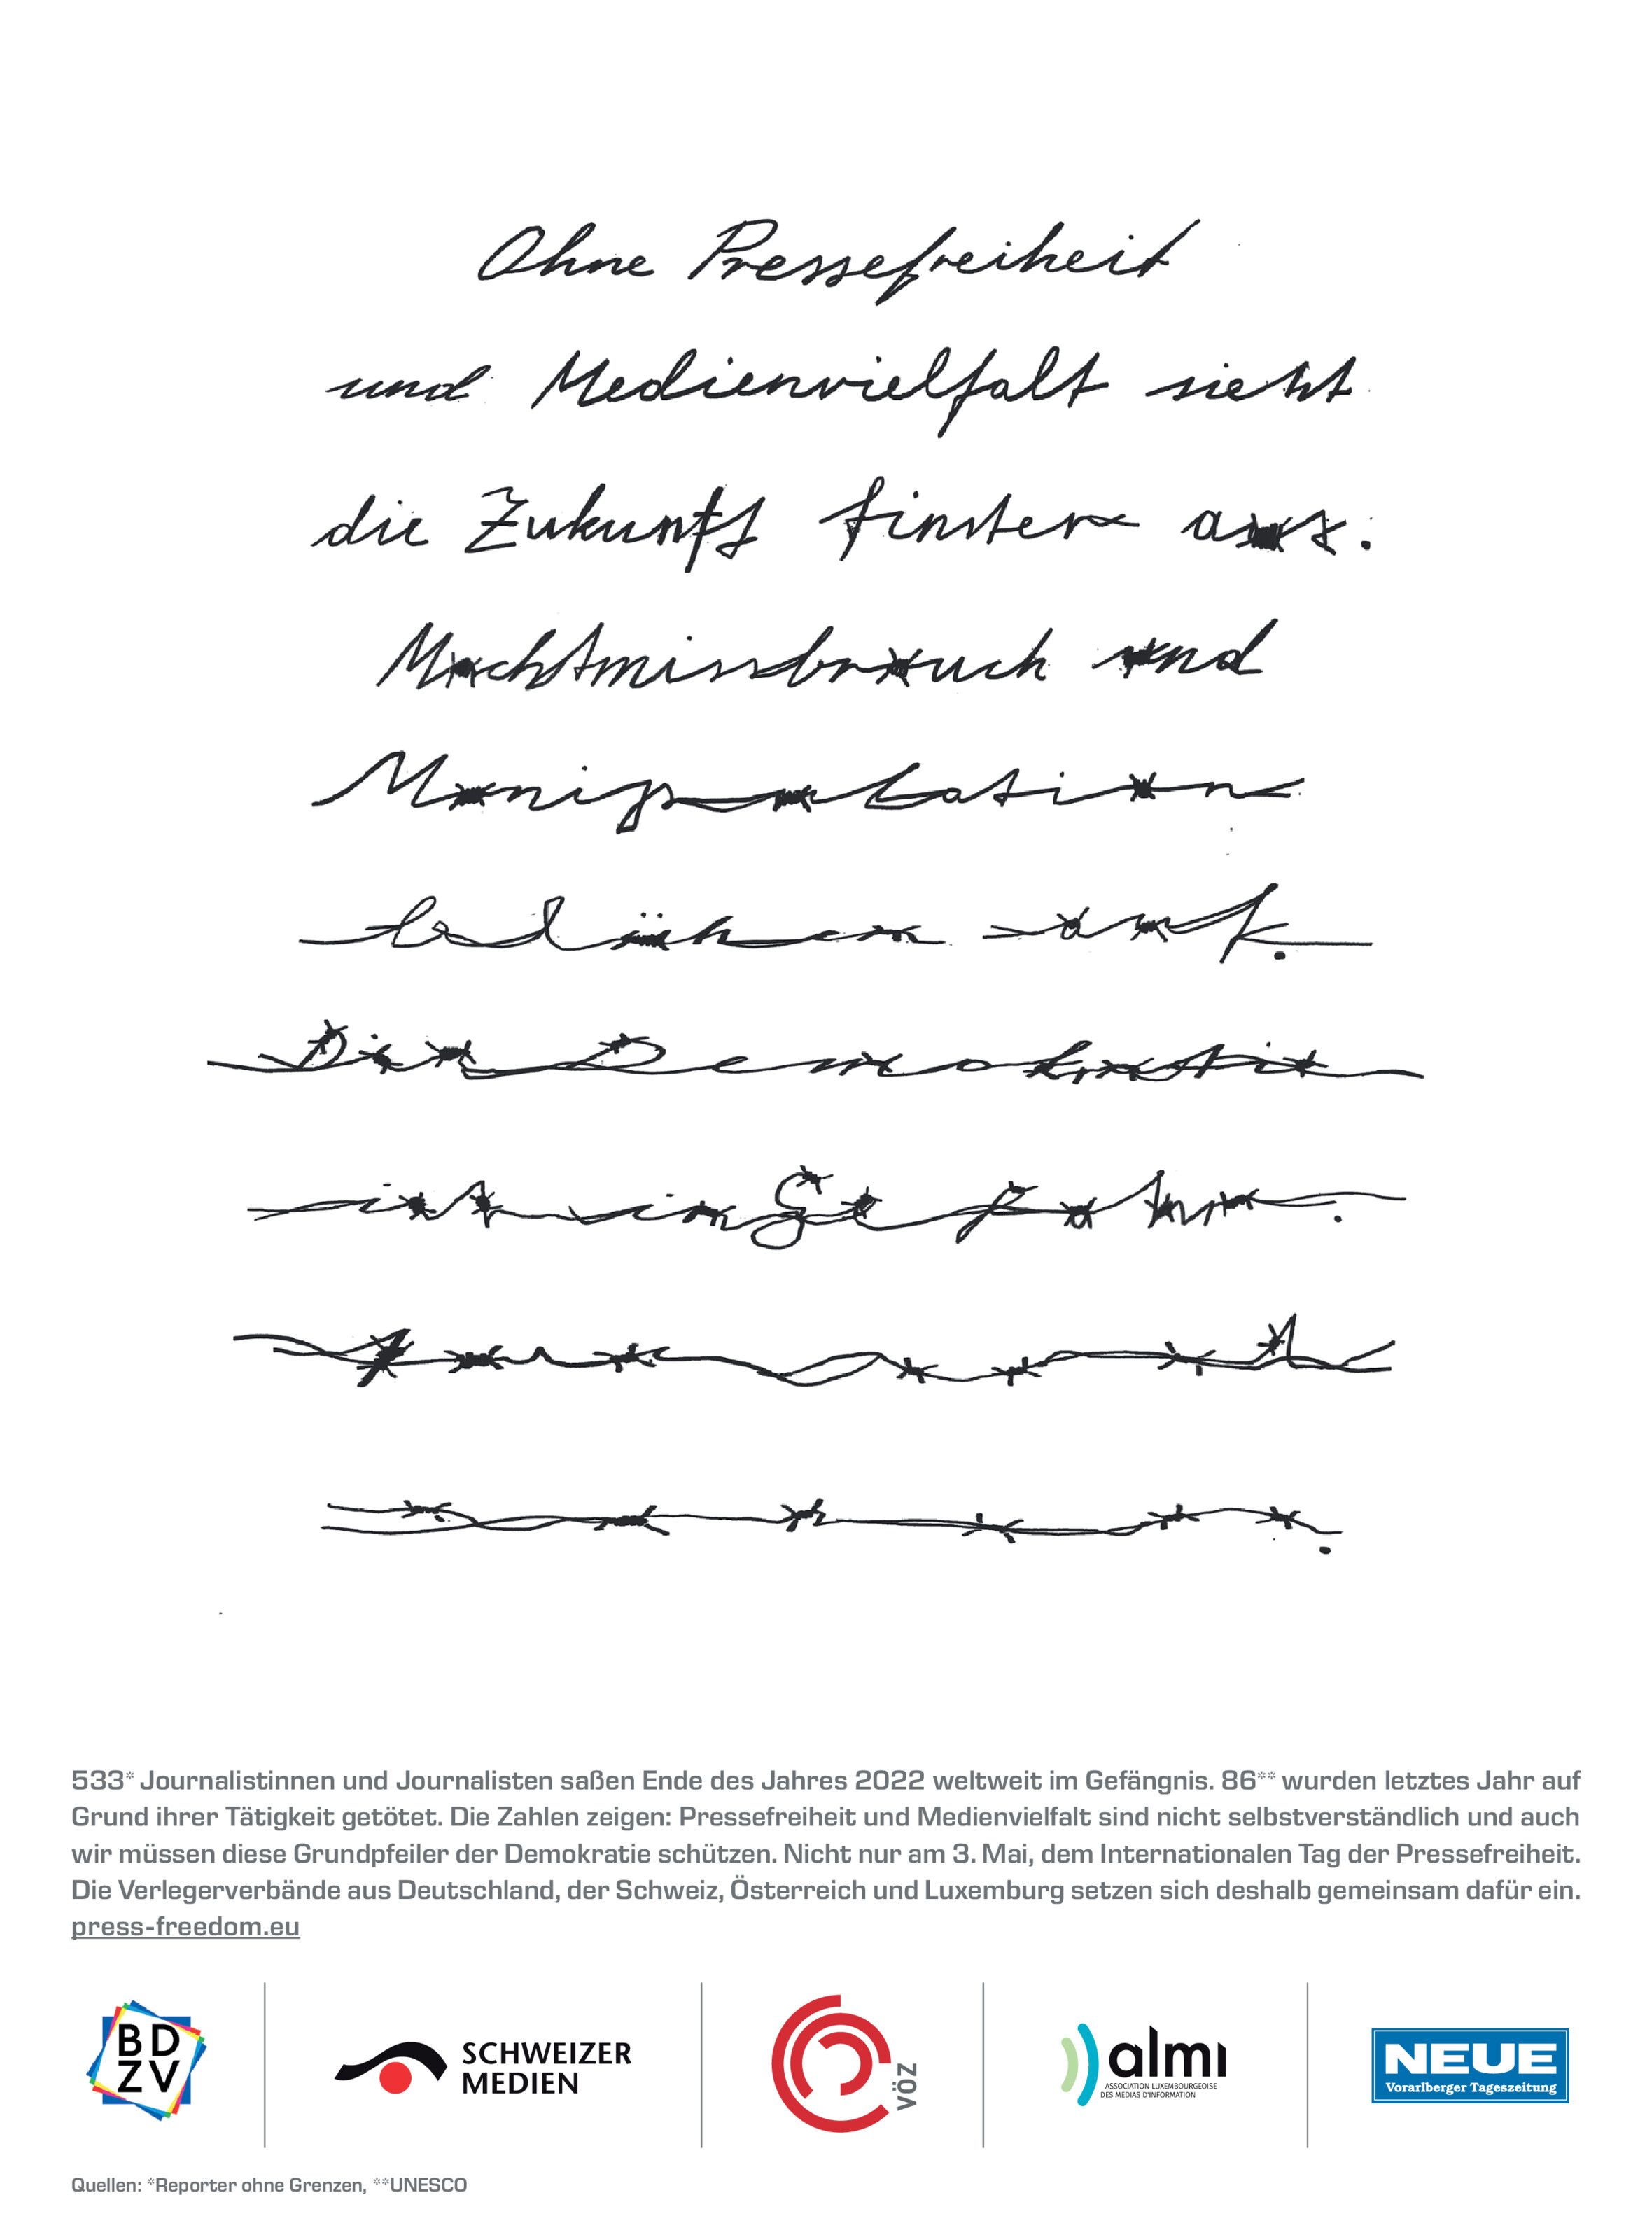 Ohne Pressefreiheit
und Medienvielfalt sieht
die Zukunft finster aus.
Machtmissbrauch und
Manipulation
blühen auf.
Die Demokratie
ist in Gefahr.
533* Journalistinnen und Journalisten saßen Ende des Jahres 2022 weltweit im Gefängnis. 86** wurden letztes Jahr auf
Grund ihrer Tätigkeit getötet. Die Zahlen zeigen: Pressefreiheit und Medienvielfalt sind nicht selbstverständlich und auch
wir müssen diese Grundpfeiler der Demokratie schützen. Nicht nur am 3. Mai, dem Internationalen Tag der Pressefreiheit.
Die Verlegerverbände aus Deutschland, der Schweiz, Österreich und Luxemburg setzen sich deshalb gemeinsam dafür ein.
press-freedom.eu
BD
ZV
SCHWEIZER
MEDIEN
VÖZ
almi
ASSOCIATION LUXEMBOURGEOISE
DES MEDIAS D'INFORMATION
NEUE
Vorarlberger Tageszeitung
Quellen: *Reporter ohne Grenzen, **UNESCO